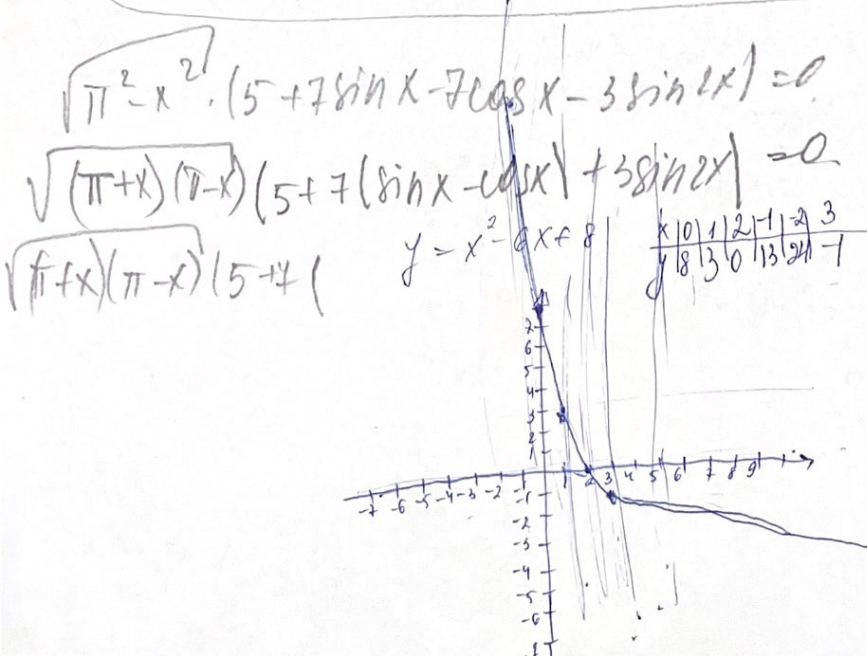 √(π² - x²) · (5 + 7sin x - 7cos x - 3sin2x) = 0
√((π+x)(π-x)) (5 + 7(sin x - cos x) + 3sin2x) = 0
√((π+x)(π-x)) (5 + 7(
y = x² - 6x + 8
x | 0 | 1 | 2 | -1 | -2 | 3
y | 8 | 3 | 0 | 13 | 24 | -1
7
6
5
4
3
2
1
-7 -6 -5 -4 -3 -2 -1 1 2 3 4 5 6 7 8 9
-1
-2
-3
-4
-5
-6